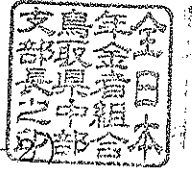 全日本
年金者組合
鳥取県中部
支部長之印